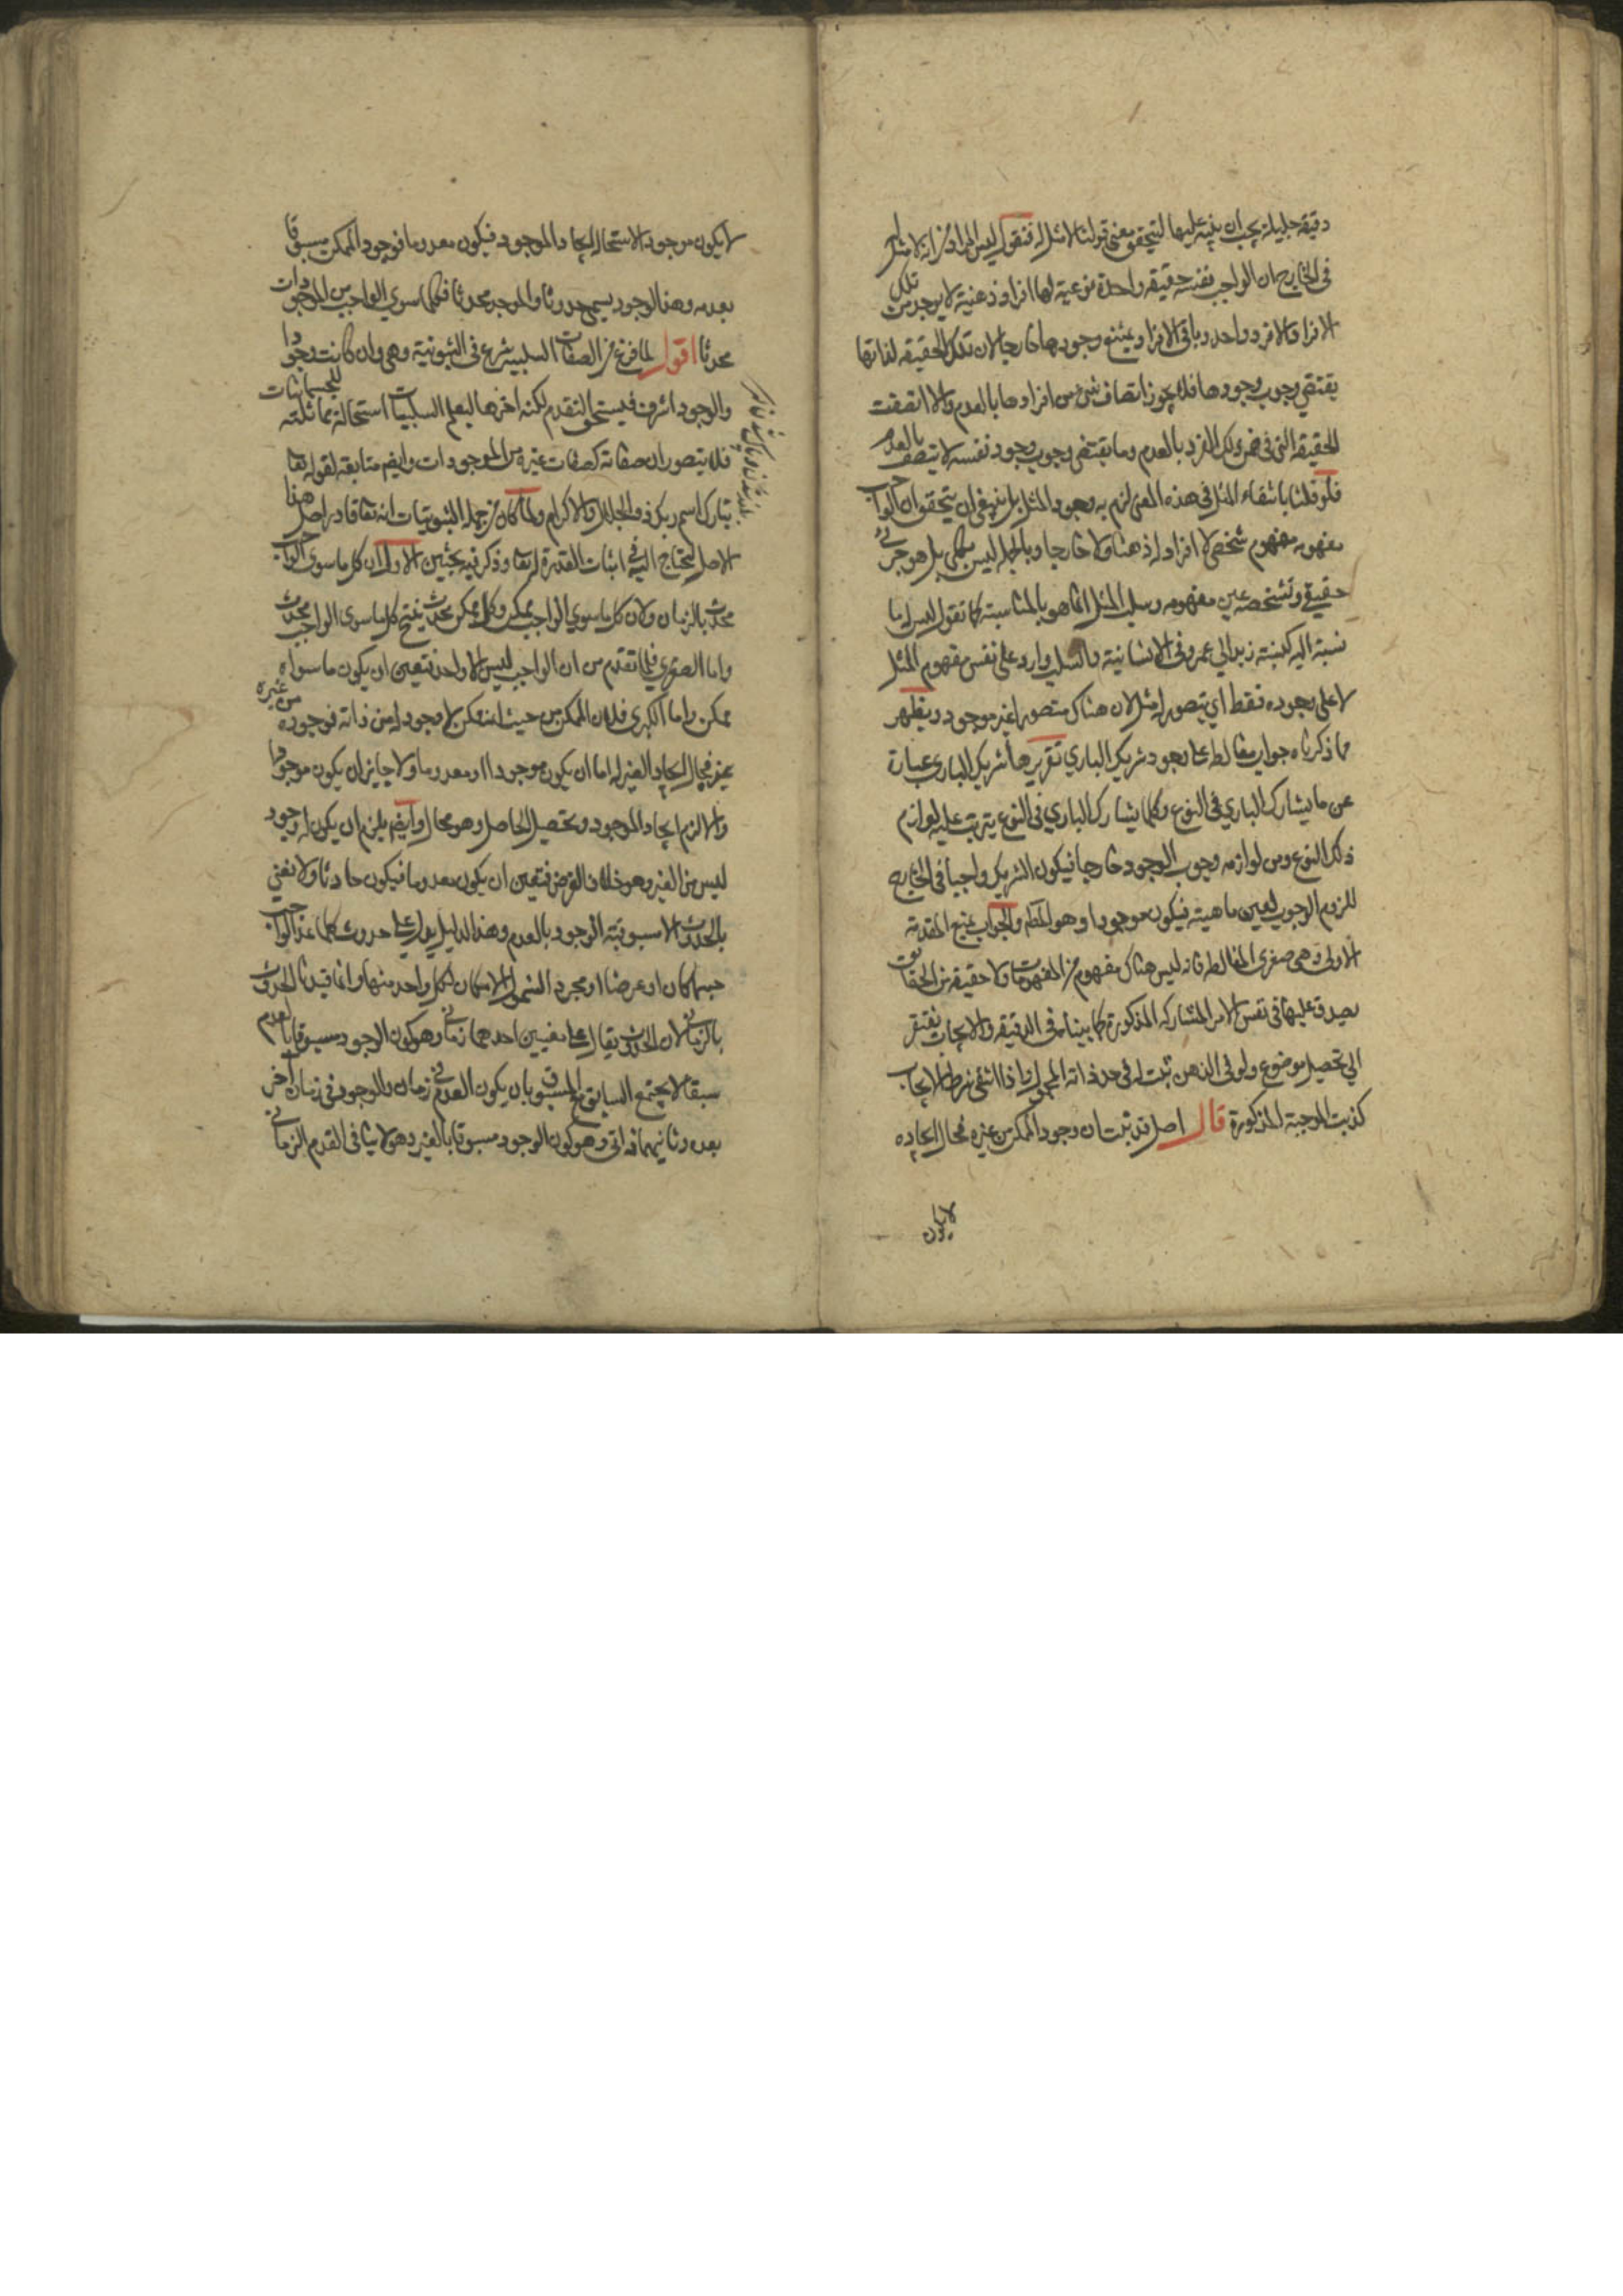 دقيقة جليلة يجب ان ينبه عليها ليتحقق معنى قولنا لا مثل له فنقول ليس المراد من انه لا مثل له
في الخارج ان الواجب نفسه حقيقة واحدة نوعية لها افراد ذهنية لا يوجد من تلك
الافراد الا فرد واحد وباقي الافراد يمتنع وجودها خارجا لان تلك الحقيقة لذاتها
يقتضي وجوب وجودها فلا يجوز اتصاف شئ من افرادها بالعدم والا اتصفت
الحقيقة التي في ضمن ذلك الفرد بالعدم وما يقتضي وجوب وجود نفسه لا يتصف بالعدم
فلو قلنا بانتفاء المثل في هذه المعنى لزم به وجود المثل بل ينبغي ان يتحقق ان الواجب
مفهومه مفهوم شخصي لا افراد له ذهنا ولا خارجا وبالجملة ليس بكلي بل هو جزئي
حقيقي وتشخصه عين مفهومه وسلب المثل انما هو بالمناسبة كما تقول ليس له ما
نسبة اليه كنسبة زيد الي عمرو في الانسانية والسلب وارد على نفس مفهوم المثل
لا على وجوده فقط اي يتصور له مثل لان هناك متصورا غير موجود ويظهر
مما ذكرناه جواب مغالطة على وجود شريك الباري تقريرها شريك الباري عبارة
عن ما يشارك الباري في النوع وكلما يشارك الباري في النوع يترتب عليه لوازم
ذلك النوع ومن لوازمه وجوب الوجود خارجا فيكون الشريك واجبا في الخارج
للزوم الوجوب لعين ماهيته فيكون موجودا وهو المط والجواب بمنع المقدمة
الاولى وهي صغرى المغالطة فانه ليس هناك مفهوم من المفهومات ولا حقيقة من الحقائق
يصدق عليها في نفس الامر المشاركة المذكورة كما بينا في الدقيقة والايجاب يفتقر
الي تحصيل موضوع ولو في الذهن ثبت له في حد ذاته المحمول فاذا انتفى شرط الايجاب
كذبت الموجبة المذكورة قال اصل قد ثبت ان وجود الممكن من غيره فحال ايجاده
لا يكون
لا يكون موجودا لاستحالة ايجاد الموجود فيكون معدوما فوجود الممكن مسبوقا
بعدمه وهذا الوجود يسمى حدوثا والموجود محدثا فكلما سوي الواجب من الموجودات
محدثا اقول لما فرغ من الصفات السلبية شرع في الثبوتية وهي وان كانت وجودا
والوجود اشرف فيستحق التقدم لكنه اخرها ليعلم السلبيات استحالة مماثلته للجسمانيات
فلا يتصور ان صفاته كصفات غيره من الموجودات وايضم متابعة لقوله تعا
تبارك اسم ربك ذو الجلال والاكرام ولما كان من جملة الثبوتيات انه تعا قادر اصل هذا
الاصل المحتاج اليه في اثبات القدرة له تعا وذكر فيه بحثين الاول ان كل ما سوى الواجب
محدث بالزمان ولان كل ما سوي الواجب ممكن وكل ممكن محدث ينتج كل ما سوى الواجب محدث
واما الصغرى فلما تقدم من ان الواجب ليس الا واحد فتعين ان يكون ما سواه
ممكن واما الكبرى فلان الممكن من حيث انه ممكن لا وجود له من ذاته فوجوده من غيره
فحال ايجاد الغير له اما ان يكون موجودا او معدوما ولا جايز ان يكون موجودا
والا لزم ايجاد الموجود وتحصيل الحاصل وهو محال وايضم يلزم ان يكون له وجود
ليس من الغير وهو خلاف الفرض فتعين ان يكون معدوما فيكون حادثا ولا نعني
بالحدوث الا مسبوقية الوجود بالعدم وهذا الدليل يدل على حدوث كلما عدا الواجب
جسما كان او عرضا او مجردا لشمول الامكان لكل واحد منها وانما قيدنا الحدوث
بالزماني لان الحدوث يقال على معنيين احدهما زماني وهو كون الوجود مسبوقا بالعدم
سبقا لا يجتمع السابق مع المسبوق بان يكون العدم في زمان والوجود في زمان آخر
بعده وثانيهما ذاتي وهو كون الوجود مسبوقا بالغير وهو لا ينافي القدم الزماني